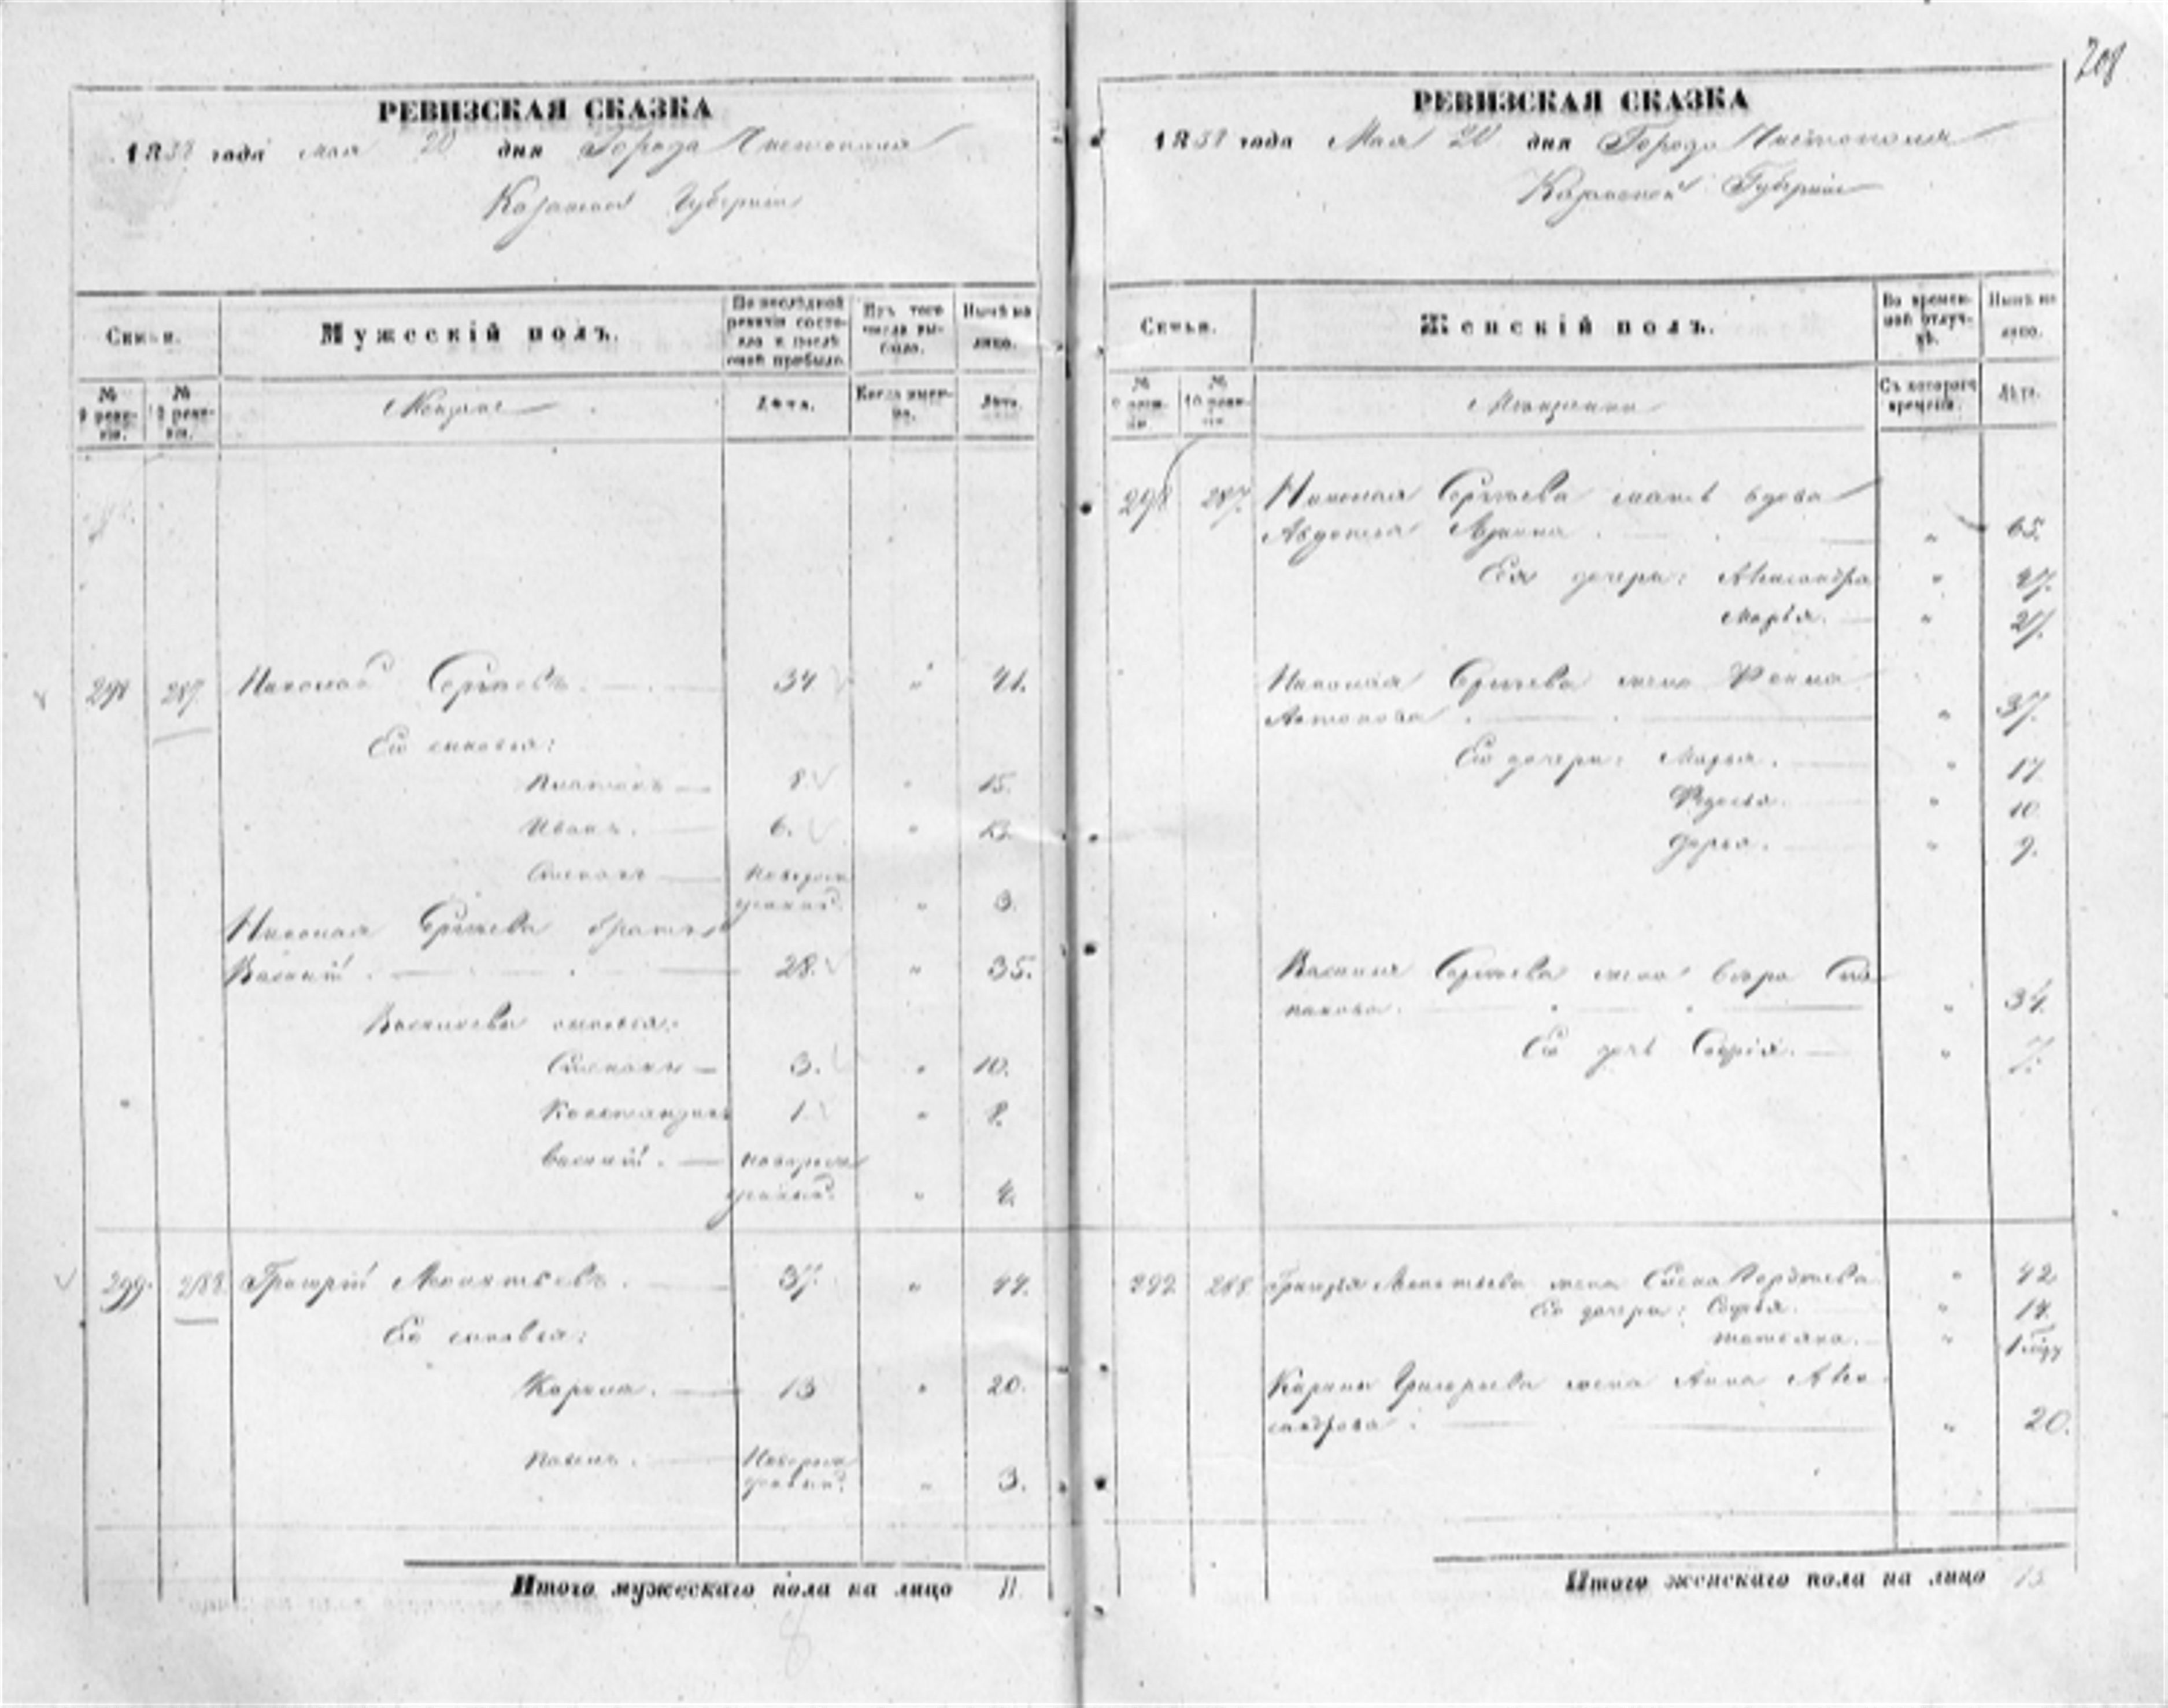 208
РЕВИЗСКАЯ СКАЗКА
1858 года мая 20 дня Города Чистополя
Казанской Губернии
Семьи.
Мужескій полъ.
По послѣдней ревизіи состояло и послѣ оной прибыло.
Изъ того числа выбыло.
Нынѣ на лицо.
№ 9 ревизіи.
№ 10 ревизіи.
Мещане
Лѣта.
Когда именно.
Лѣта.
298 287 Николай Сергѣевъ. 34 " 41.
Его сыновья:
Платонъ 8. " 15.
Иванъ. 6. " 13.
Степанъ новорож
денный. " 3.
Николая Сергѣева братъ
Василій. 28. " 35.
Васильевы сыновья:
Степанъ 3. " 10.
Константинъ 1. " 8.
Василій. новорож
денный. " 4.
299. 288. Григорій Леонтьевъ. 37. " 44.
Его сыновья:
Карпъ. 13 " 20.
Павелъ. Новорож
денный. " 3.
Итого мужескаго пола на лицо 11.
РЕВИЗСКАЯ СКАЗКА
1858 года Мая 20 дня Города Чистополя
Казанской Губерніи
Семьи.
Женскій полъ.
Во временной отлучкѣ.
Нынѣ на лицо.
№ 9 ревизіи.
№ 10 ревизіи.
Мещанки
Съ котораго времени.
Лѣта.
298 287. Николая Сергѣева мать вдова
Авдотья " 65.
Ея дочери: Александра " 27.
Марья. " 21.
Николая Сергѣева жена
Антонова. " 37.
Его дочери: Марья. " 17.
Федосья. " 10.
Дарья. " 9.
Василья Сергѣева жена Вѣра Сте
панова. " 34.
Его дочь Софія. " 7.
299 288 Григорья Леонтьева жена Елена " 42
Его дочери: Софья. " 14.
Татьяна. " 1 году
Карпа Григорьева жена Анна Алек
сандрова. " 20.
Итого женскаго пола на лицо 13.